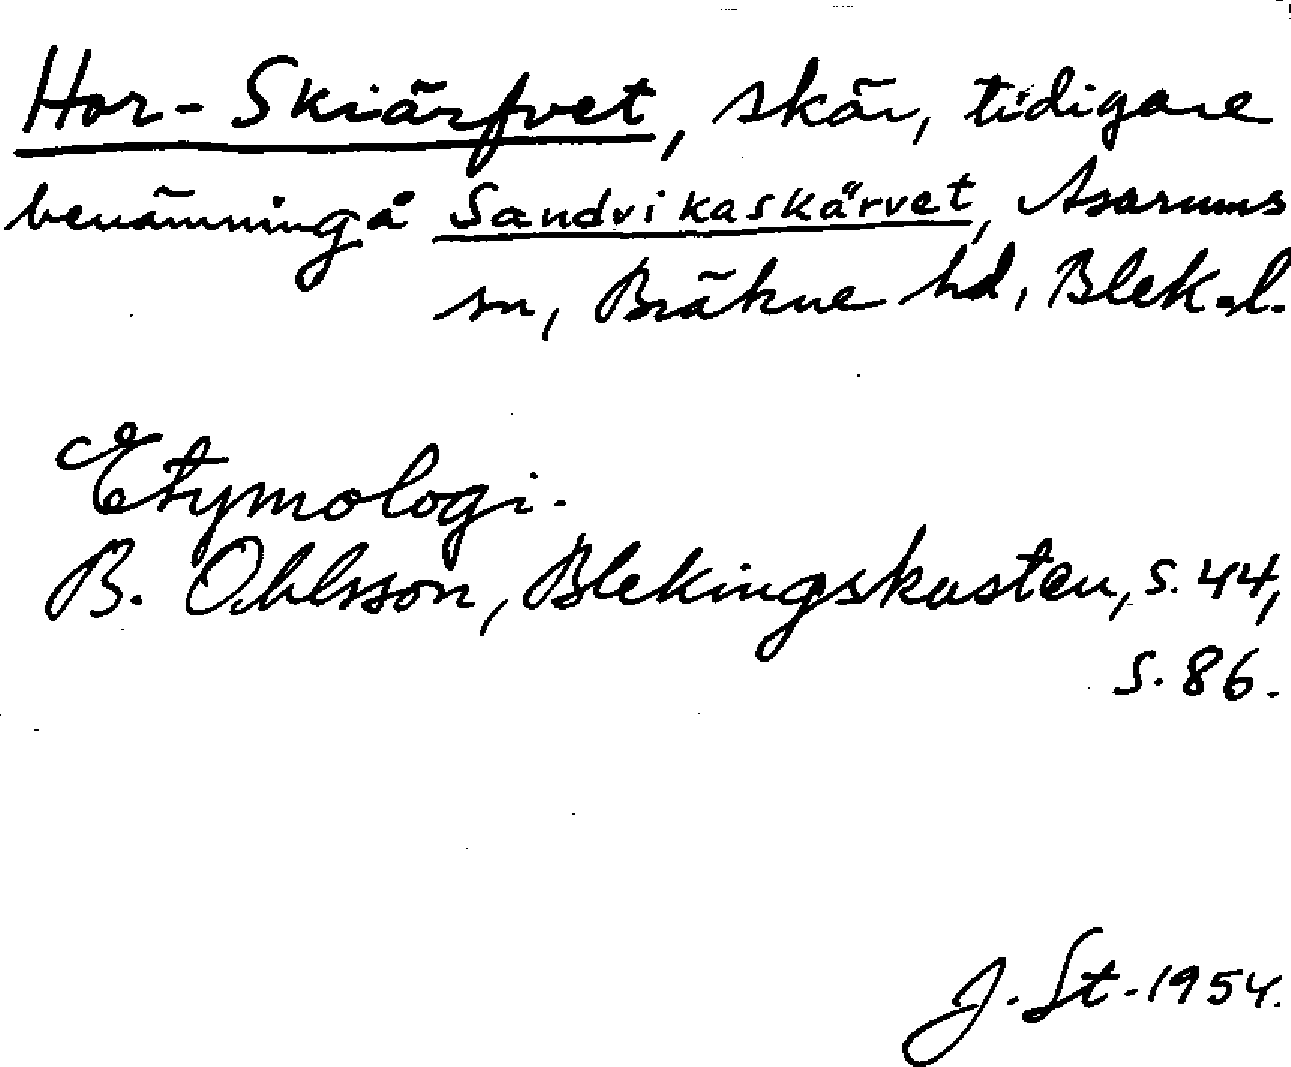 Hor-Skiärfvet, skär, tidigare
benämning å Sandvikaskärvet, Asarums
sn, Bräkne hd, Blek. l.
Etymologi.
B. Ohlsson, Blekingskusten, s. 44,
s. 86.
J. St. 1954.